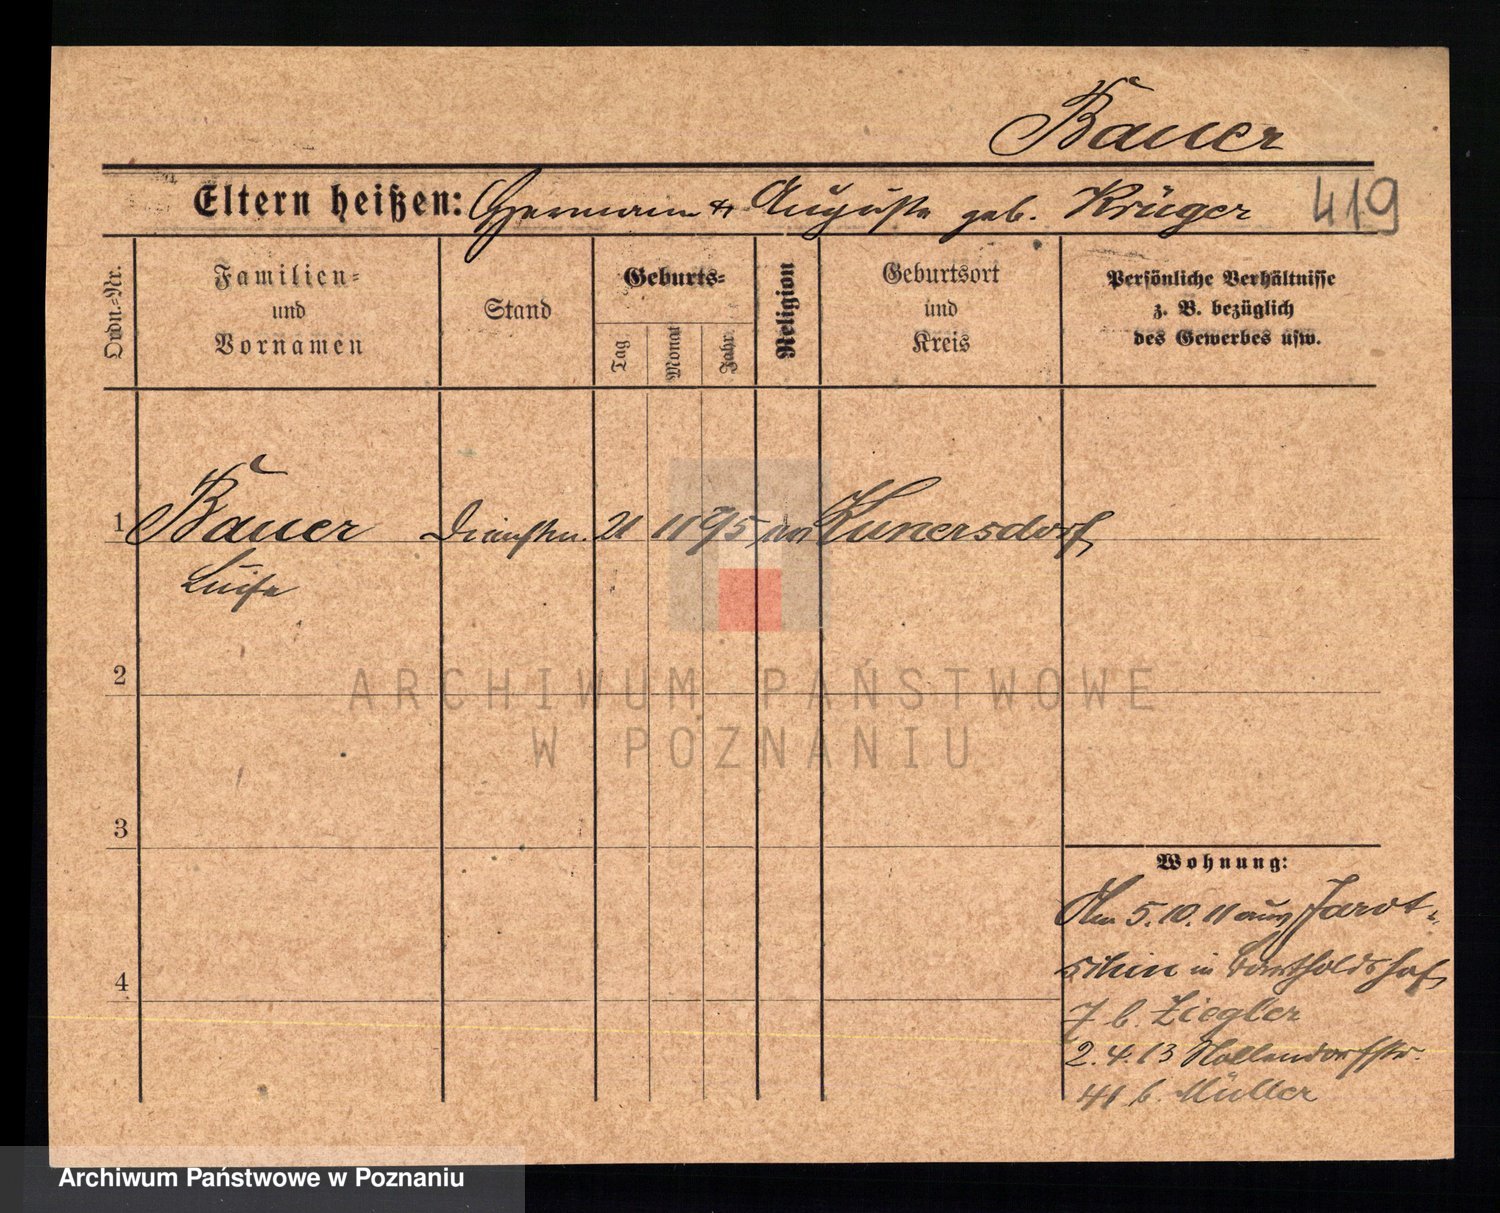 Bauer
Eltern heißen: Hermann & Auguste geb. Krüger 419
Ordn.-Nr.
Familien- und Vornamen
Stand
Geburts-
Tag
Monat
Jahr
Religion
Geburtsort und Kreis
Persönliche Verhältnisse z. B. bezüglich des Gewerbes usw.
1 Bauer Dienstm. 21 11 95 Kunersdorf
Luise
2
ARCHIWUM PAŃSTWOWE
W POZNANIU
3
Wohnung:
Am 5.10.11 aus Jarot-
schin in Bartholdshof
7 b. Ziegler
4
2.4.13 Nollendorfstr.
41 b. Müller
Archiwum Państwowe w Poznaniu